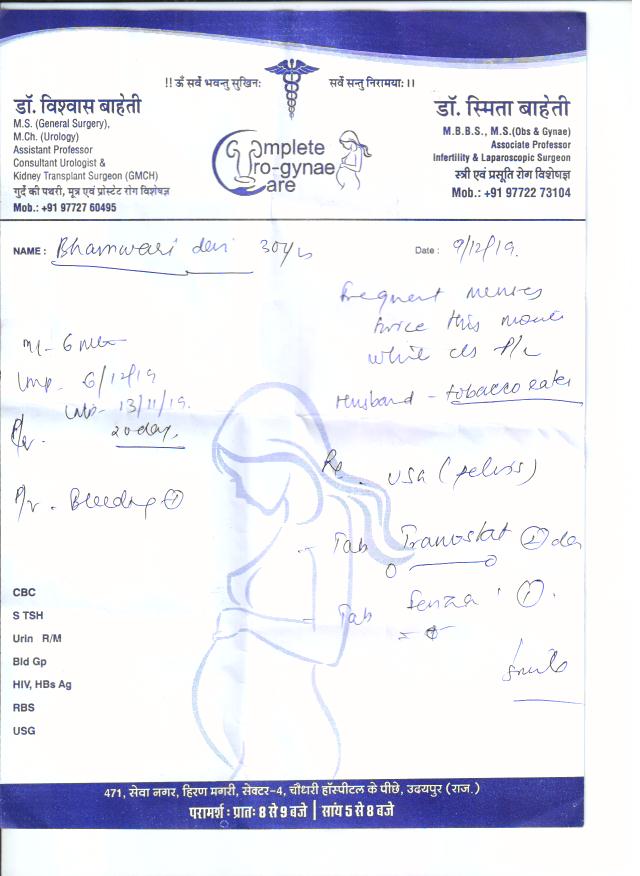 !! ॐ सर्वे भवन्तु सुखिनः सर्वे सन्तु निरामयाः !!
डॉ. विश्वास बाहेती
M.S. (General Surgery),
M.Ch. (Urology)
Assistant Professor
Consultant Urologist &
Kidney Transplant Surgeon (GMCH)
गुर्दे की पथरी, मूत्र एवं प्रोस्टेट रोग विशेषज्ञ
Mob.: +91 97727 60495
Complete
Uro-gynae
Care
डॉ. स्मिता बाहेती
M.B.B.S., M.S.(Obs & Gynae)
Associate Professor
Infertility & Laparoscopic Surgeon
स्त्री एवं प्रसूति रोग विशेषज्ञ
Mob.: +91 97722 73104
NAME : Bhanwari devi 30yrs
Date : 9/12/19.
frequent menses
twice this month
Husband - tobacco eater
Lmp - 6/12/19
Lmp - 13/11/19.
20 day,
P/v - Bleeding
Rx
USG (pelvis)
- Tab Tranostat
- Tab
CBC
S TSH
Urin R/M
Bld Gp
HIV, HBs Ag
RBS
USG
471, सेवा नगर, हिरण मगरी, सेक्टर-4, चौधरी हॉस्पीटल के पीछे, उदयपुर (राज.)
परामर्श : प्रातः 8 से 9 बजे | सांय 5 से 8 बजे